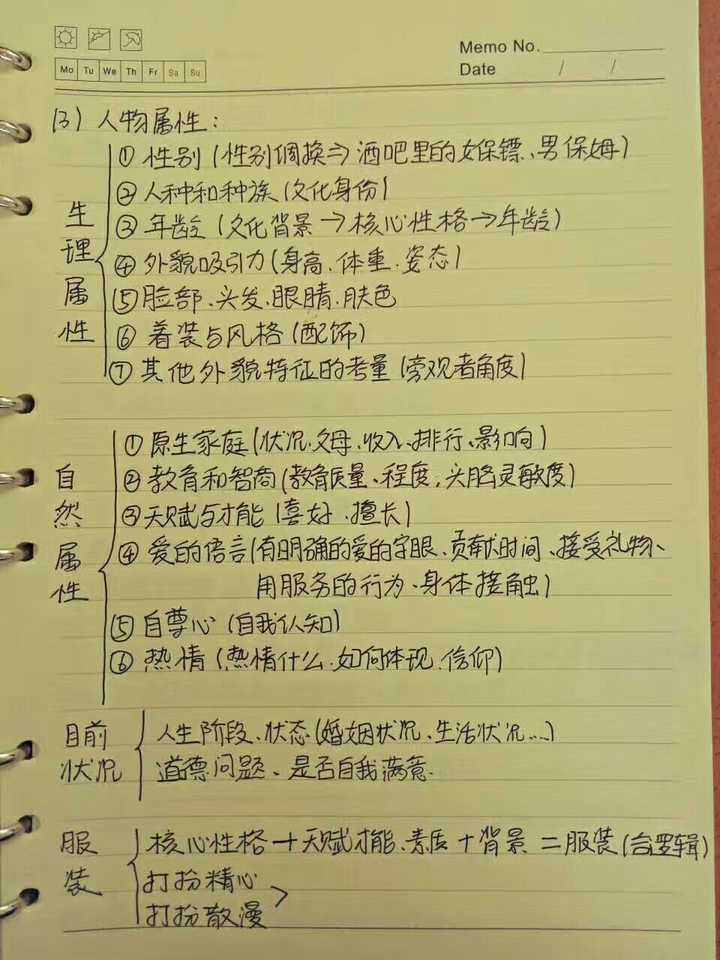 Memo No.
Mo Tu We Th Fr Sa Su
Date / /
(3) 人物属性:
生理属性
① 性别 (性别调换⇒酒吧里的女保镖、男保姆)
② 人种和种族 (文化身份)
③ 年龄 (文化背景→核心性格→年龄)
④ 外貌吸引力 (身高、体重、姿态)
⑤ 脸部、头发、眼睛、肤色
⑥ 着装与风格 (配饰)
⑦ 其他外貌特征的考量 (旁观者角度)
自然属性
① 原生家庭 (状况、父母、收入、排行、影响)
② 教育和智商 (教育质量、程度,头脑灵敏度)
③ 天赋与才能 (喜好、擅长)
④ 爱的语言 (有明确的爱的字眼、贡献时间、接受礼物、
用服务的行为、身体接触)
⑤ 自尊心 (自我认知)
⑥ 热情 (热情什么、如何体现、信仰)
目前状况
人生阶段、状态 (婚姻状况、生活状况...)
道德问题、是否自我满意.
服装
核心性格+天赋才能、素质+背景=服装 (合逻辑)
打扮精心
打扮散漫